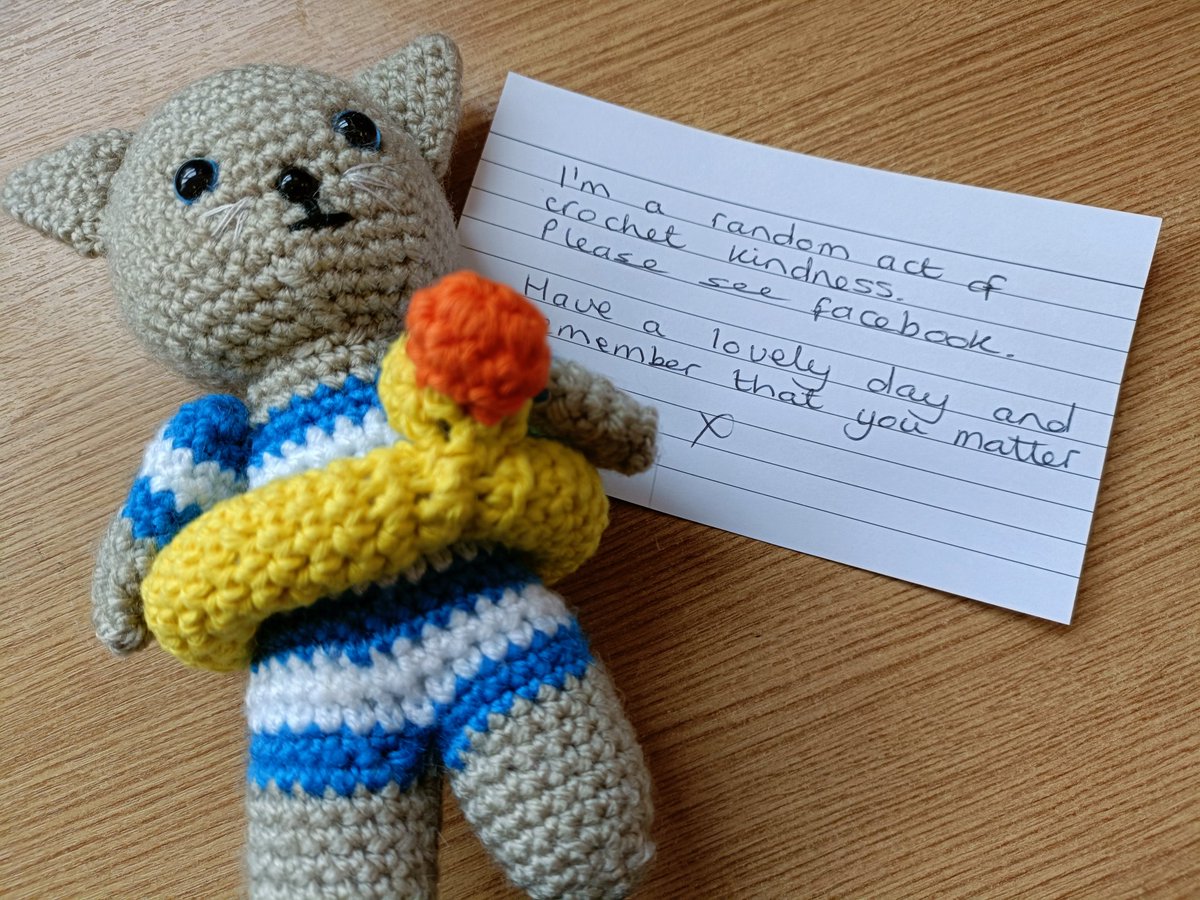 I'm a random act of
crochet kindness.
Please see facebook.
Have a lovely day and
that you matter
X